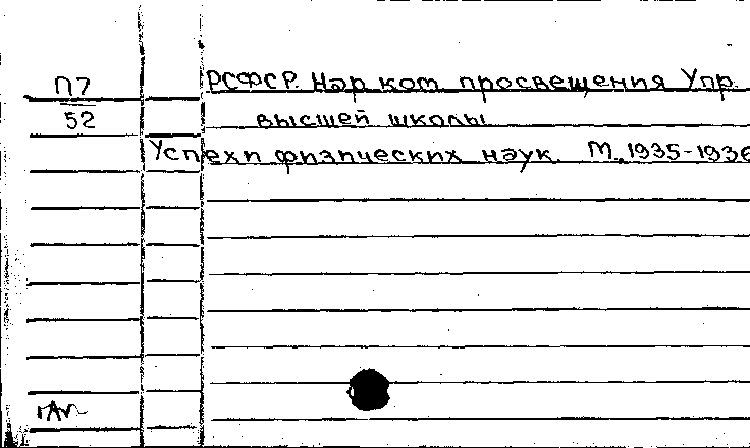 П7
52
РСФСР. Нар. ком. просвещения Упр.
высшей школы
Успехи физических наук. М., 1935-1936